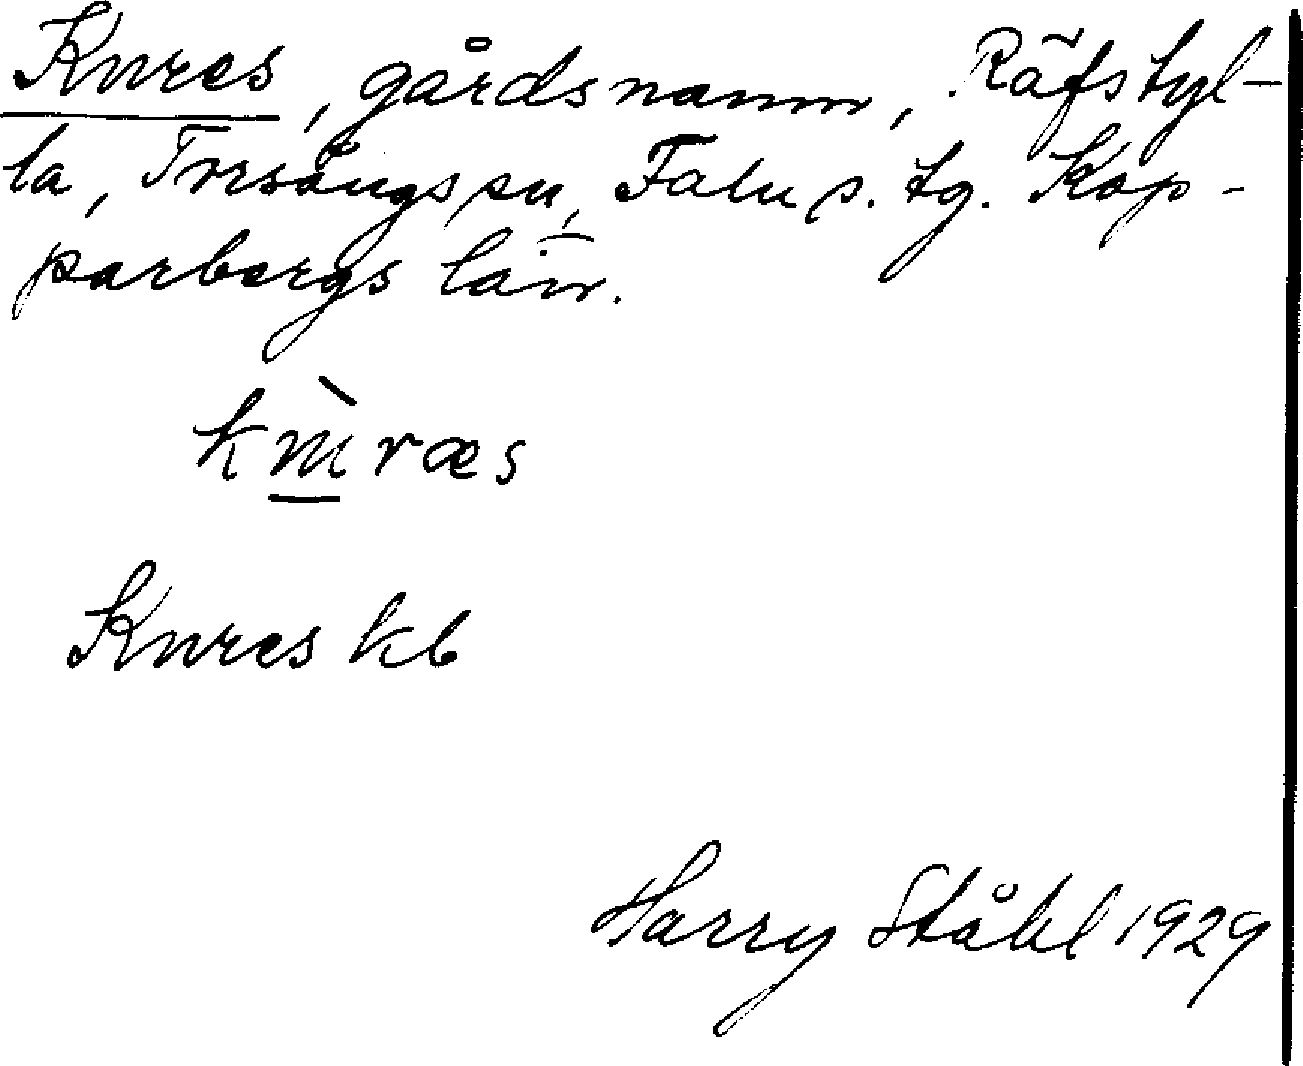 Knres, gårdsnamn, Räfstyl-
la, Torsångs sn, Falu s. tg. Kop-
parbergs län.
Knres kb
Harry Ståhl 1929